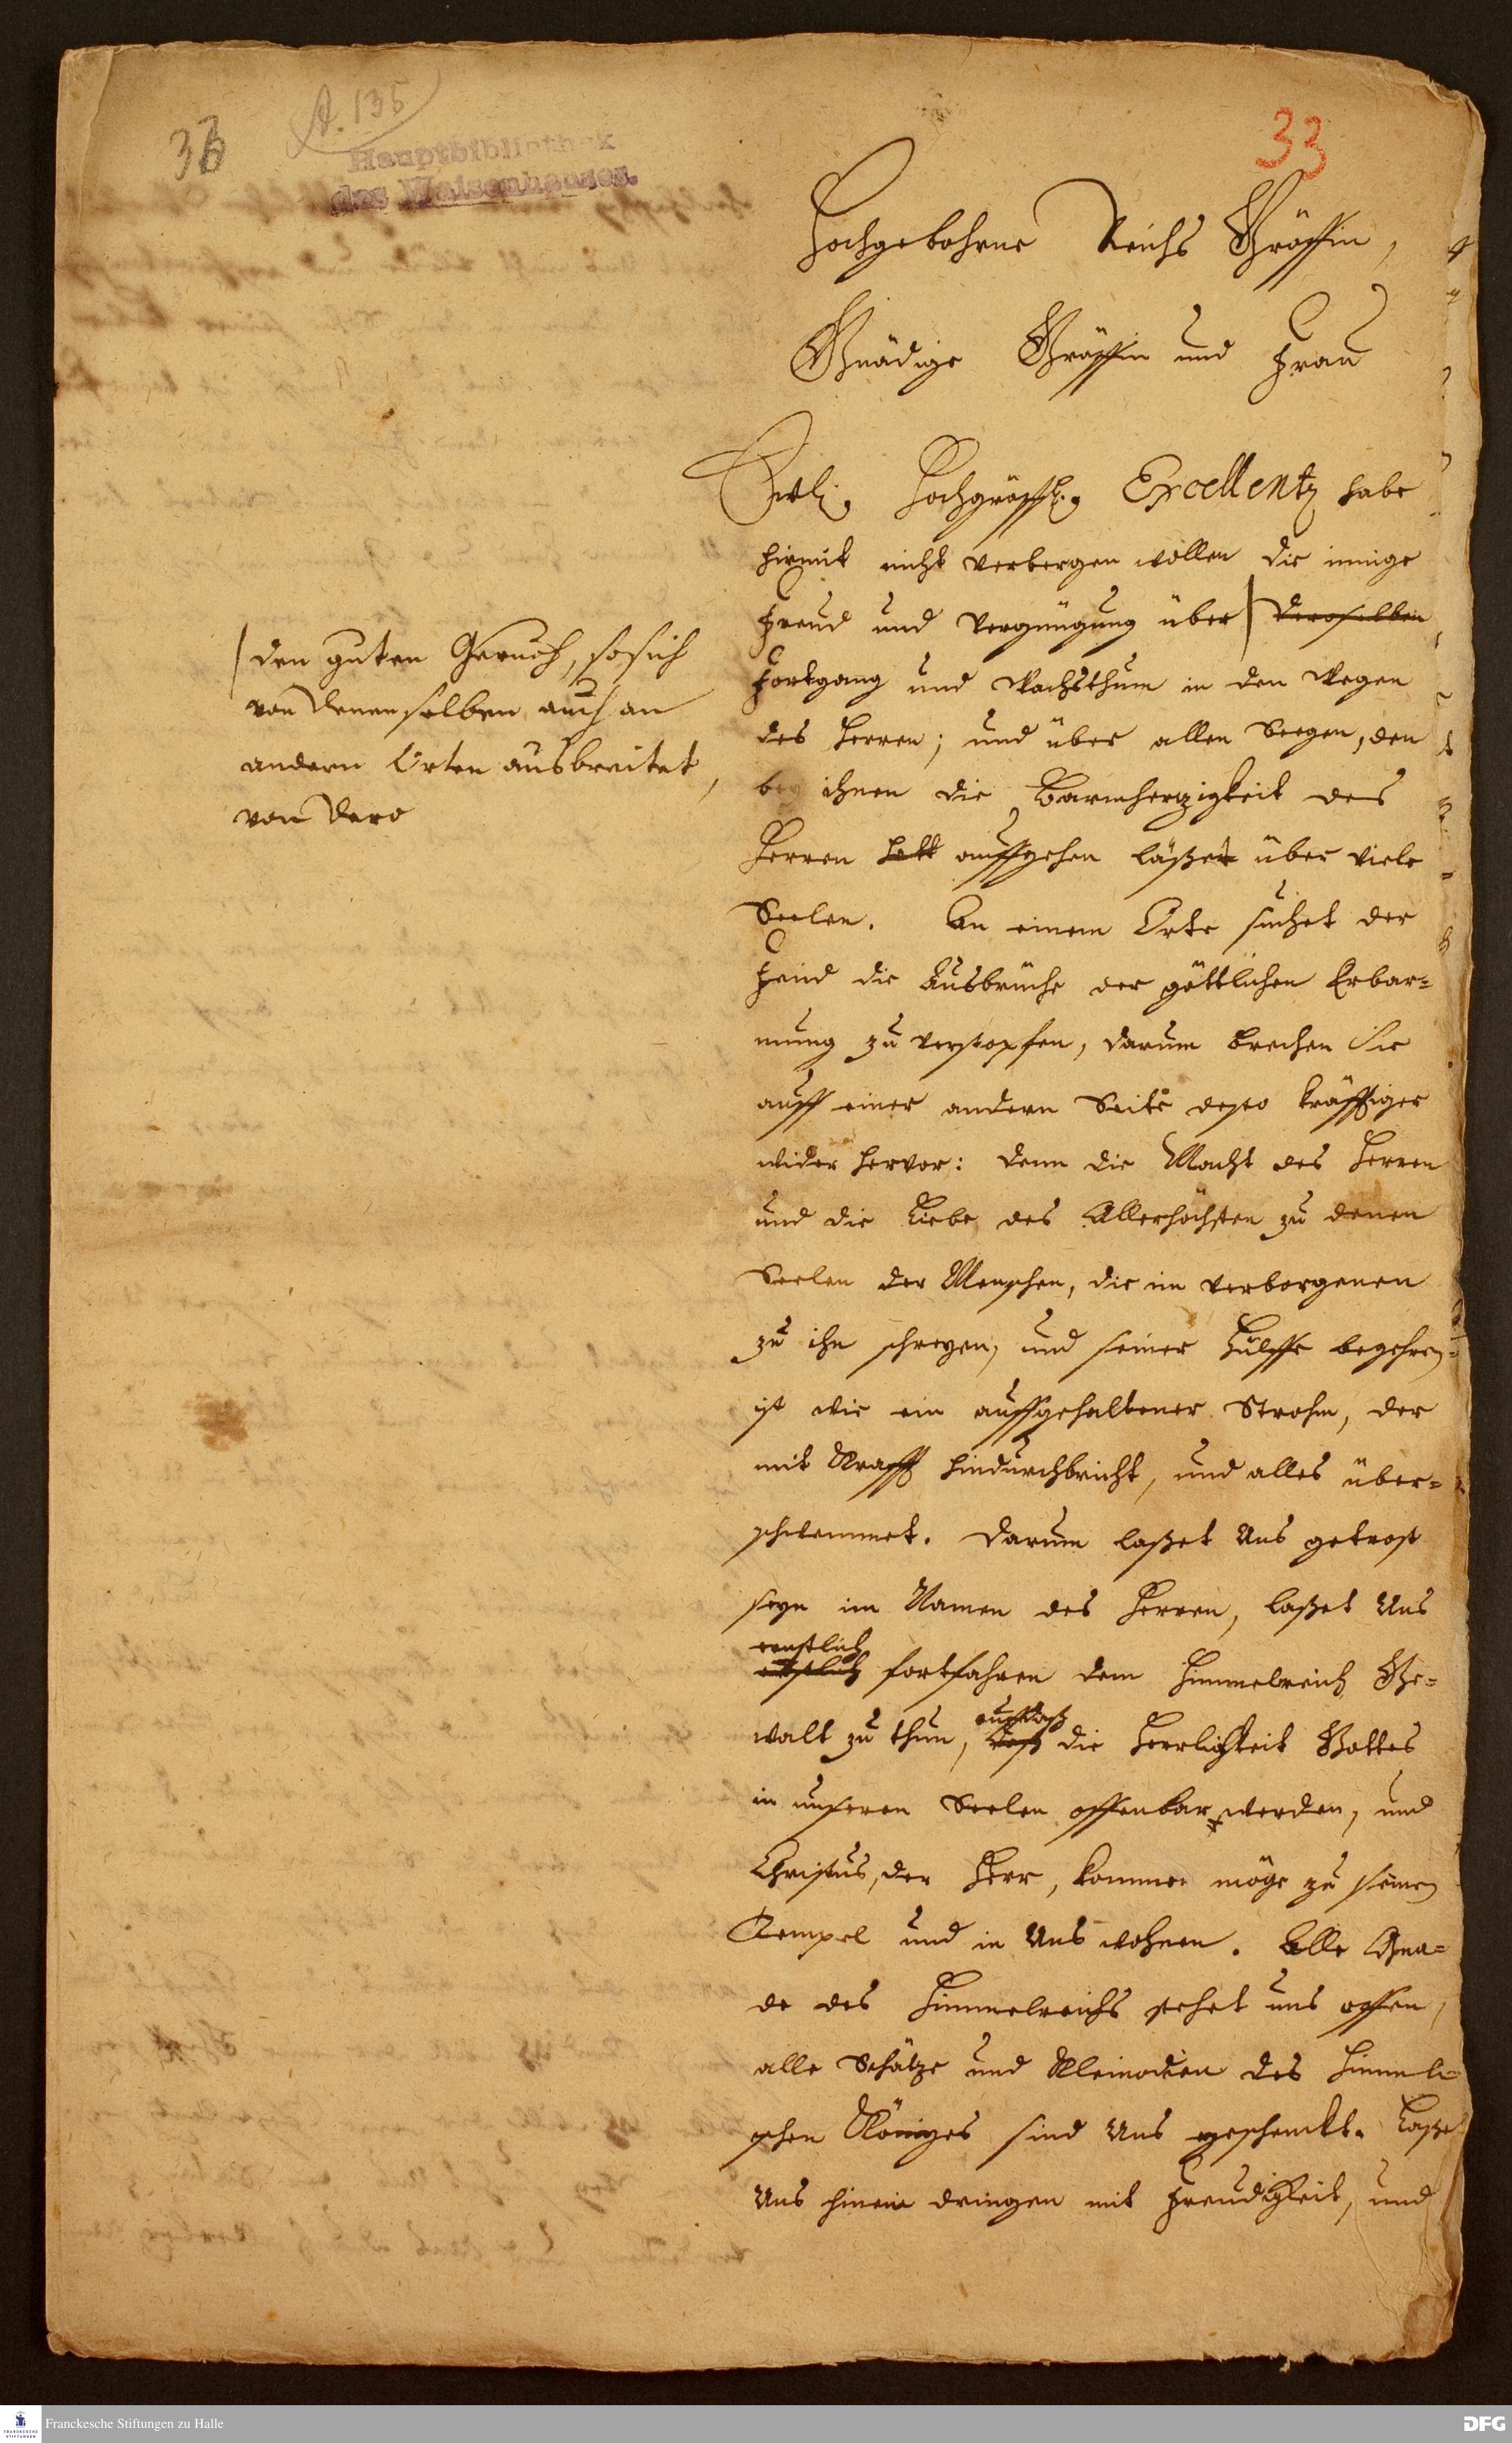 A. 135
36
33
Hauptbibliothek
des Waisenhauses.
Hochgebohrne Reichs Gräffin,
Gnädige Gräffin und Frau
Hochgräffl. Excellentz habe
hirmit nicht verbergen wollen die innige
Freud und Vergnügung über deroselben
Fortgang und Wachsthum in den Wegen
des Herren; und über allen Seegen, den
bey ihnen die Barmherzigkeit des
Herren hatt auffgehen läßet über viele
Seelen. An einem Orte suchet der
Feind die Ausbrüche der göttlichen Erbar=
mung zu verstopfen, darum brechen Sie
auff einer andern Seite desto kräfftiger
wider hervor: denn die Macht des Herren
und die Liebe des Allerhöchsten zu denen
Seelen der Menschen, die im verborgenen
zu ihm schreyen, und seiner Hülffe begehren
ist wie ein auffgehaltener Strohm, der
mit Krafft hindurchbricht, und alles über=
schwemmet. Darum laßet Uns getrost
seyn im Namen des Herren, laßet Uns
ernstlich
fortfahren dem Himmelreich Ge=
auffdaß
walt zu thun, daß die Herrlichkeit Gottes
in unseren Seelen offenbar werden, und
Christus, der Herr, kommen möge zu seinen
Tempel und in Uns wohnen. Alle Gna=
de des Himmelreichs stehet uns offen,
alle Schätze und Kleinodien des himmli=
schen Königes sind Uns geschenckt. Laßet
Uns hinein dringen mit Freudigkeit, und
den guten Geruch, so sich
von Denenselben auch an
andern Orten ausbreitet,
von Dero
Franckesche Stiftungen zu Halle
FRANCKESCHE
STIFTUNGEN
DFG